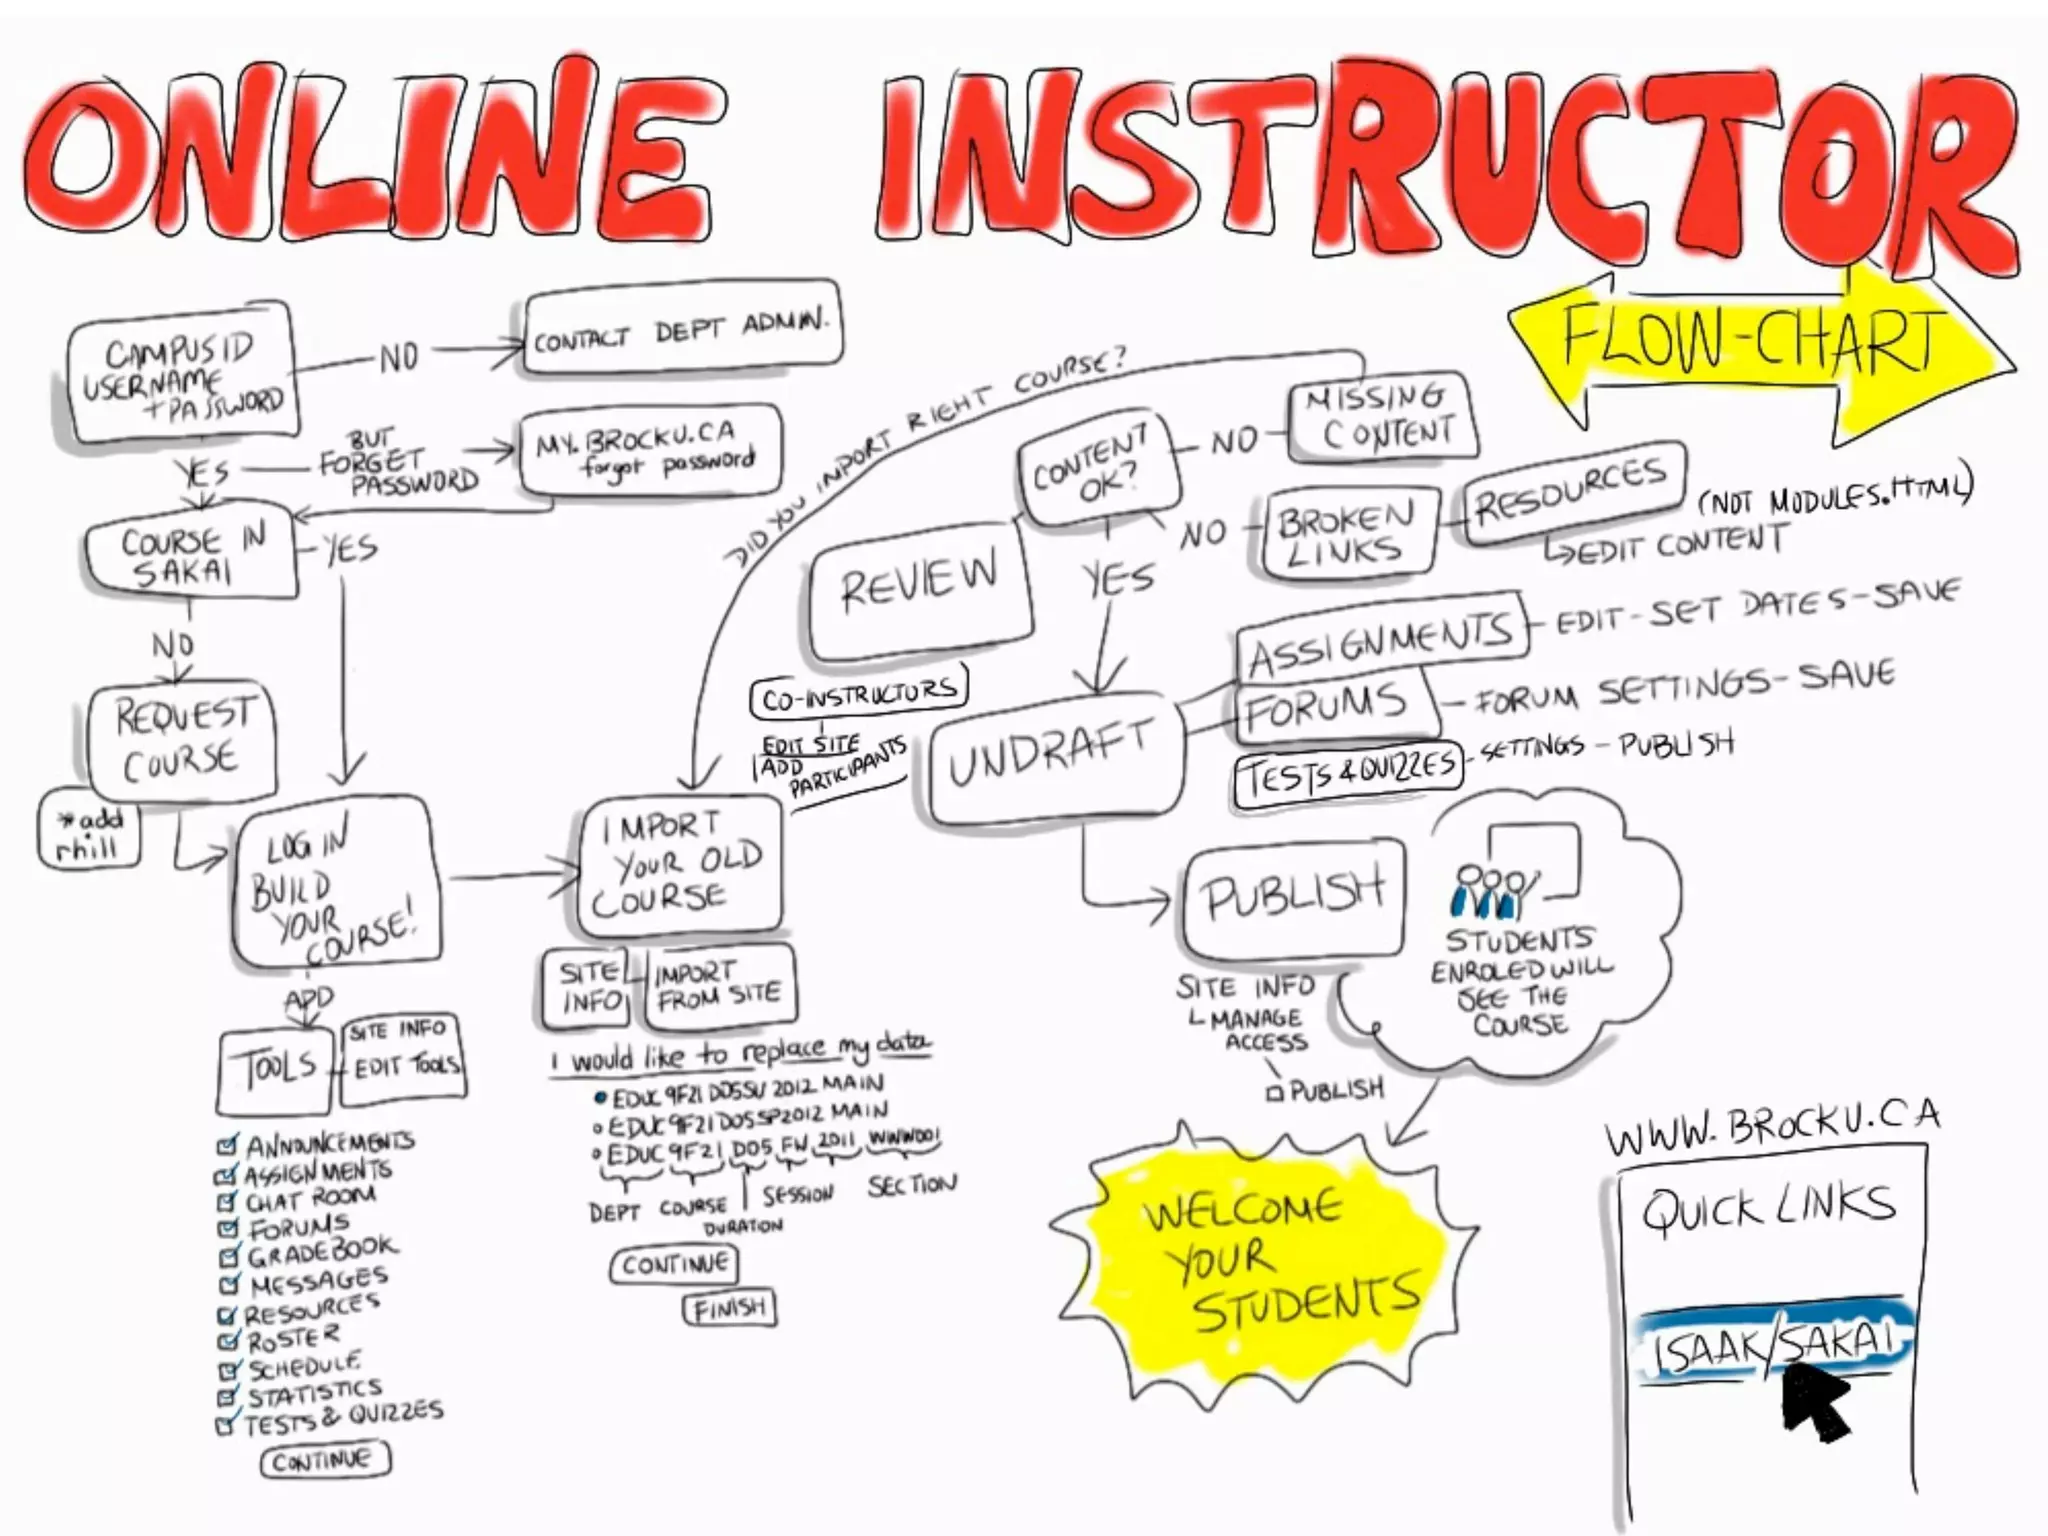 ONLINE INSTRUCTOR
FLOW-CHART
CAMPUS ID
USERNAME
+PASSWORD
NO
CONTACT DEPT ADMIN.
YES
BUT
FORGET
PASSWORD
MY.BROCKU.CA
forgot password
COURSE IN
SAKAI
YES
NO
REQUEST
COURSE
*add
rhill
LOG IN
BUILD
YOUR
COURSE!
ADD
TOOLS
SITE INFO
EDIT TOOLS
ANNOUNCEMENTS
ASSIGNMENTS
CHAT ROOM
FORUMS
GRADEBOOK
MESSAGES
RESOURCES
ROSTER
SCHEDULE
STATISTICS
TESTS & QUIZZES
CONTINUE
IMPORT
YOUR OLD
COURSE
SITE
INFO
IMPORT
FROM SITE
I would like to replace my data
EDUC 9F21 D05SU 2012 MAIN
EDUC 9F21 D05SP2012 MAIN
EDUC 9F21 D05 FW 2011 WWW001
DEPT COURSE SESSION SECTION
DURATION
CONTINUE
FINISH
DID YOU IMPORT RIGHT COURSE?
REVIEW
CONTENT
OK?
NO
MISSING
CONTENT
NO
BROKEN
LINKS
RESOURCES
(NOT MODULES.HTML)
EDIT CONTENT
YES
CO-INSTRUCTORS
EDIT SITE
ADD
PARTICIPANTS
UNDRAFT
ASSIGNMENTS
EDIT-SET DATES-SAVE
FORUMS
FORUM SETTINGS-SAVE
TESTS & QUIZZES
SETTINGS - PUBLISH
PUBLISH
SITE INFO
MANAGE
ACCESS
PUBLISH
STUDENTS
ENROLED WILL
SEE THE
COURSE
WELCOME
YOUR
STUDENTS
WWW.BROCKU.CA
QUICK LINKS
ISAAK/SAKAI